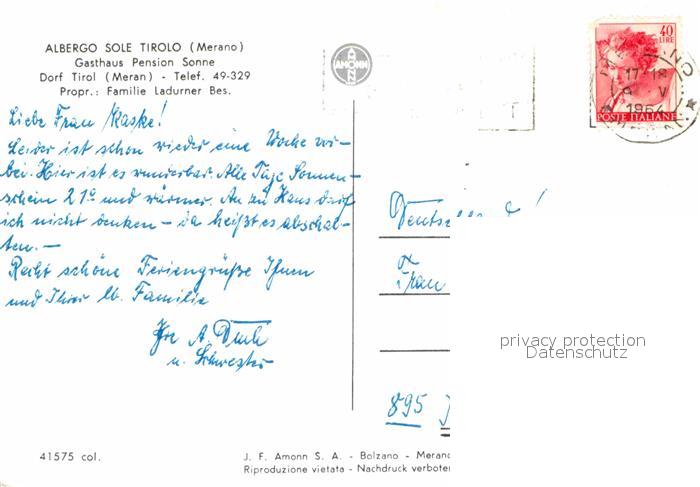 ALBERGO SOLE TIROLO (Merano)
Gasthaus Pension Sonne
Dorf Tirol (Meran) - Telef. 49-329
Propr.: Familie Ladurner Bes.
AMONN
40
LIRE
17-18
9 V
1964
POSTE ITALIANE
Liebe Frau Kaske!
Leider ist schon wieder eine Woche vor-
bei. Hier ist es wunderbar. Alle Tage Sonnen-
schein 21° und wärmer. An zu Haus darf
ich nicht denken – da heißt es abschal-
ten. –
Recht schöne Feriengrüße Ihnen
und Ihrer lb. Familie
Ihre A.
u. Schwester
Frau
895
privacy protection
Datenschutz
41575 col.
J. F. Amonn S. A. - Bolzano - Meran
Riproduzione vietata - Nachdruck verboten